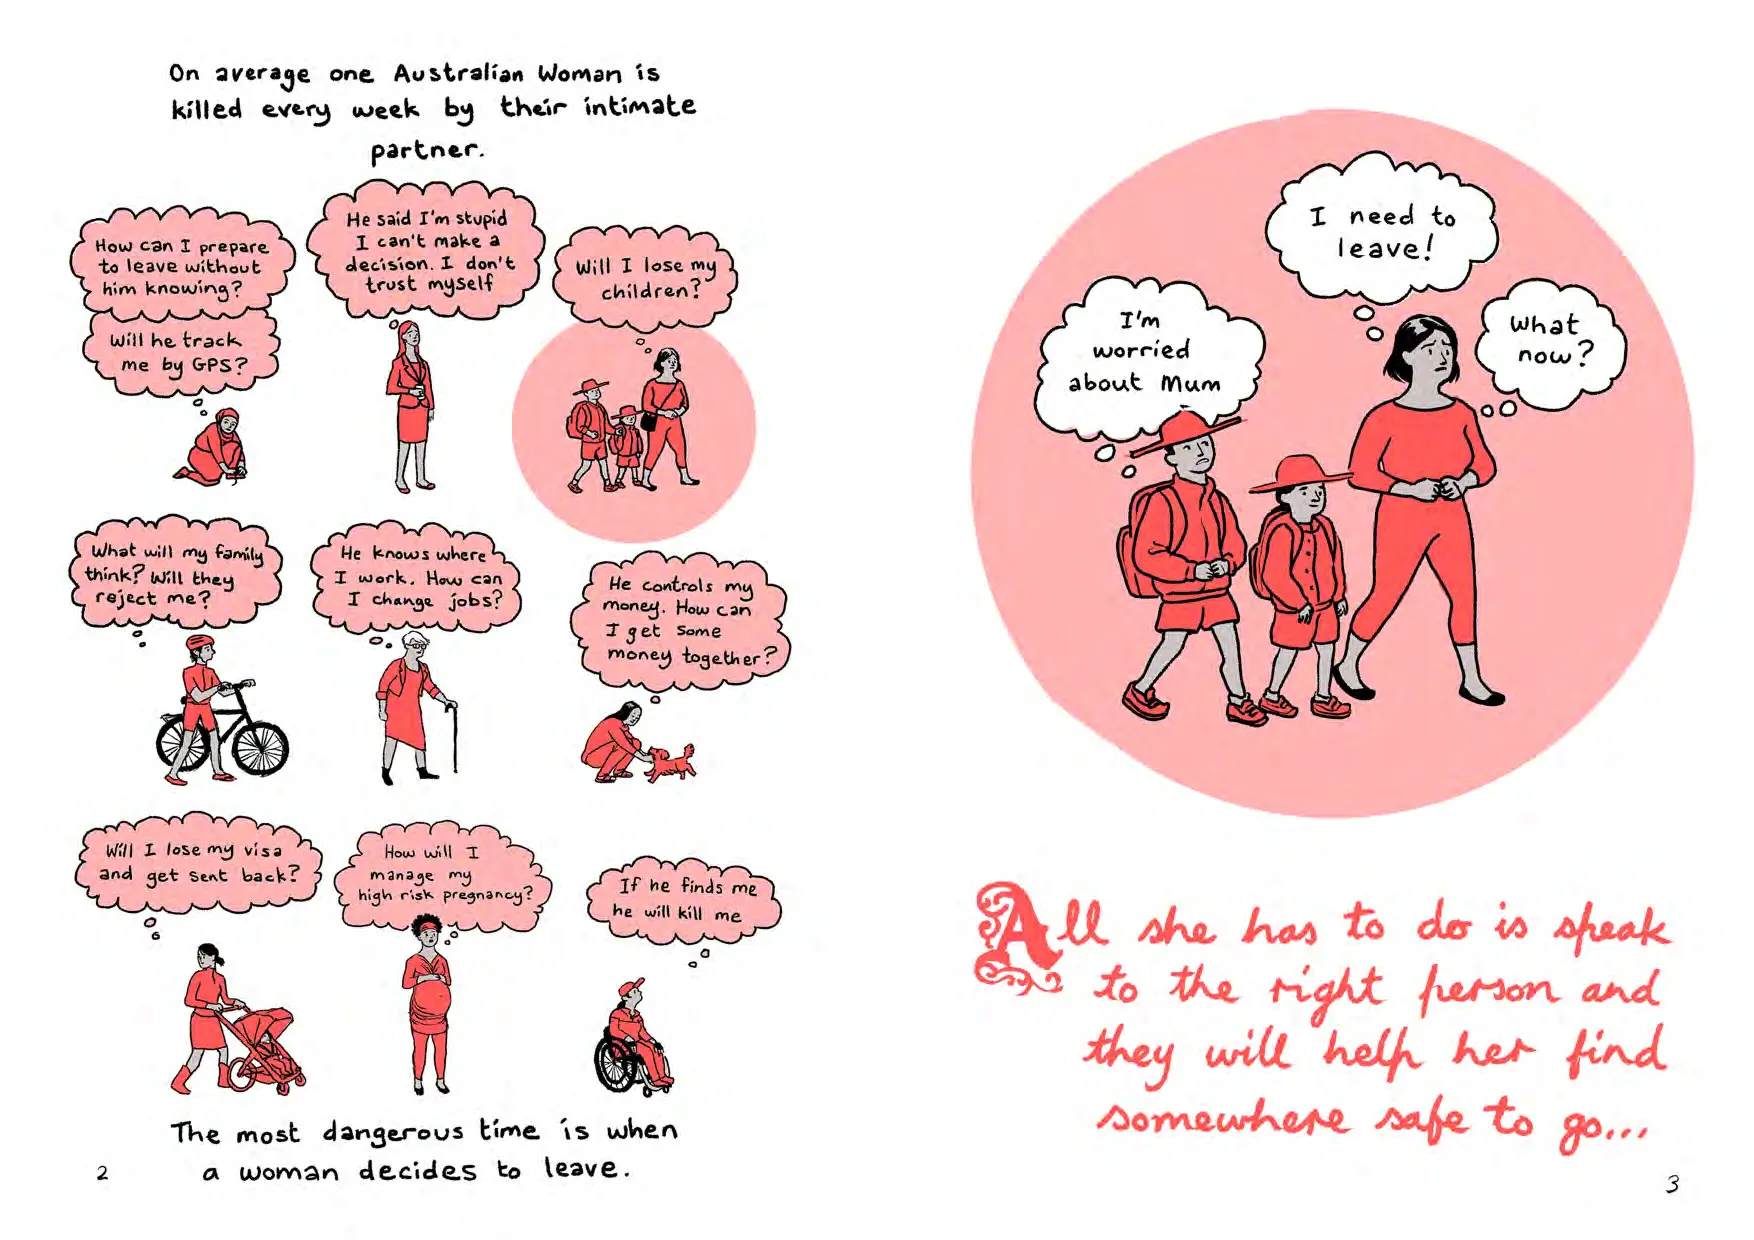 On average one Australian Woman is
killed every week by their intimate
partner.
How can I prepare
to leave without
him knowing?
Will he track
me by GPS?
He said I'm stupid
I can't make a
decision. I don't
trust myself
Will I lose my
children?
What will my family
think? Will they
reject me?
He knows where
I work. How can
I change jobs?
He controls my
money. How can
I get some
money together?
Will I lose my visa
and get sent back?
How will I
manage my
high risk pregnancy?
If he finds me
he will kill me
The most dangerous time is when
a woman decides to leave.
2
I need to
leave!
I'm
worried
about Mum
What
now?
All she has to do is speak
to the right person and
they will help her find
somewhere safe to go...
3